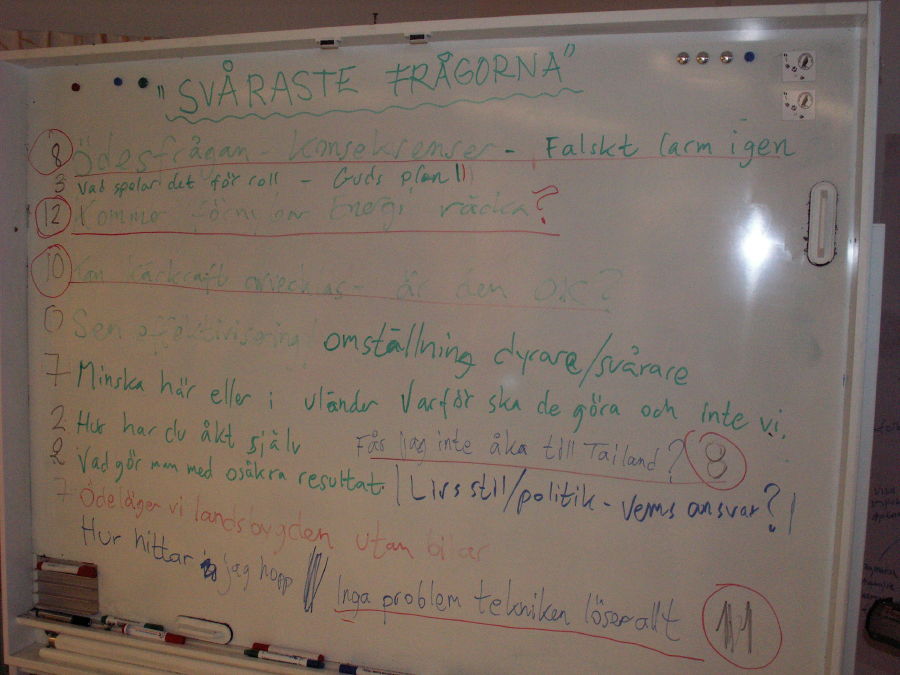 "SVÅRASTE FRÅGORNA"
8 Ödesfrågan - Konsekvenser - Falskt larm igen
3 Vad spelar det för roll - Guds plan
12 Kommer förny bar Energi räcka?
10 Kan kärkraft avvecklas - är den OK?
0 Sen effektivisering omställning dyrare/svårare
7 Minska här eller i uländer Varför ska de göra och inte vi.
2 Hur har du åkt själv Får jag inte åka till Tailand? 8
2 Vad gör man med osäkra resultat. | Livsstil/politik - vems ansvar? |
7 Ödeläger vi landsbygden utan bilar
Hur hittar jag hopp
Inga problem tekniken löser allt 11